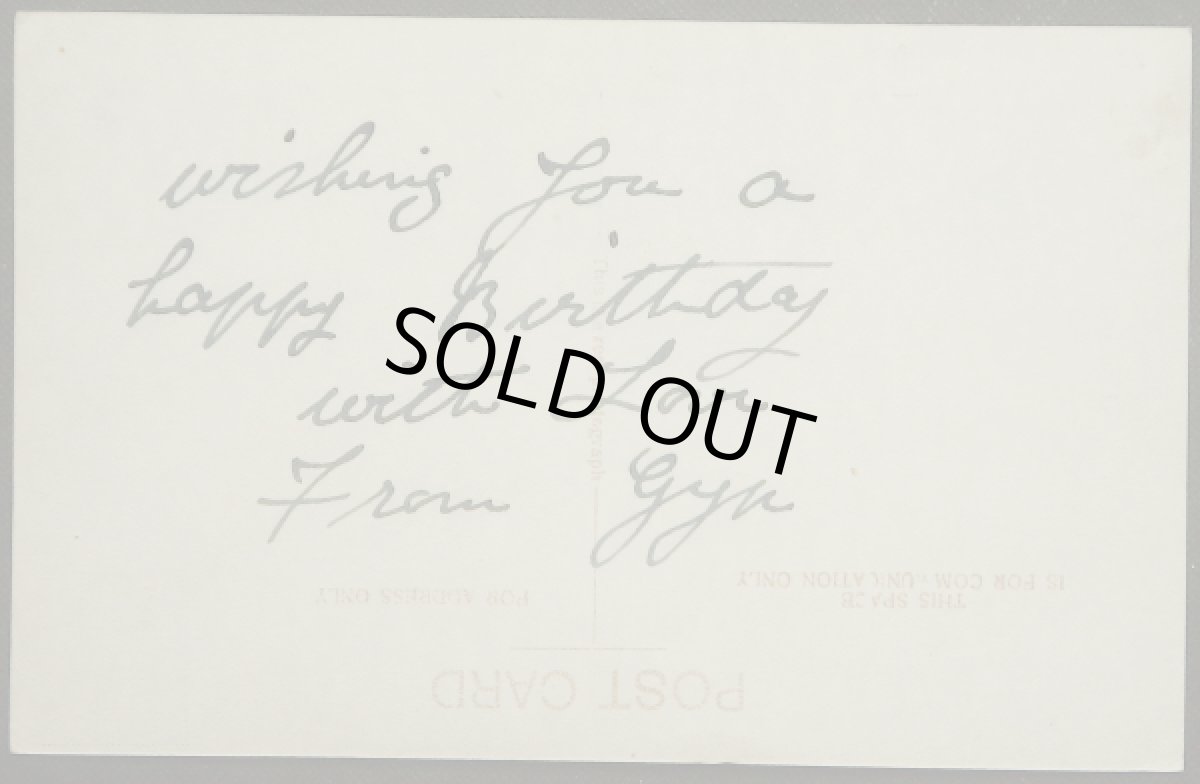 wishing You a
happy Birthday
with Love
From Gyp
SOLD OUT
THIS SPACE
IS FOR COMMUNICATION ONLY
FOR ADDRESS ONLY
POST CARD